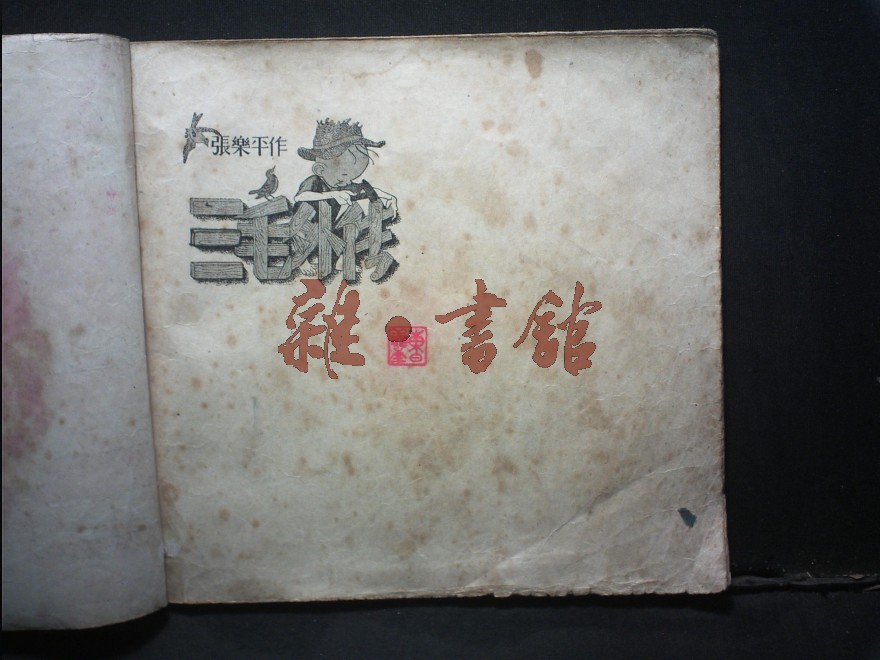 張樂平作
三毛外传
雜·書館